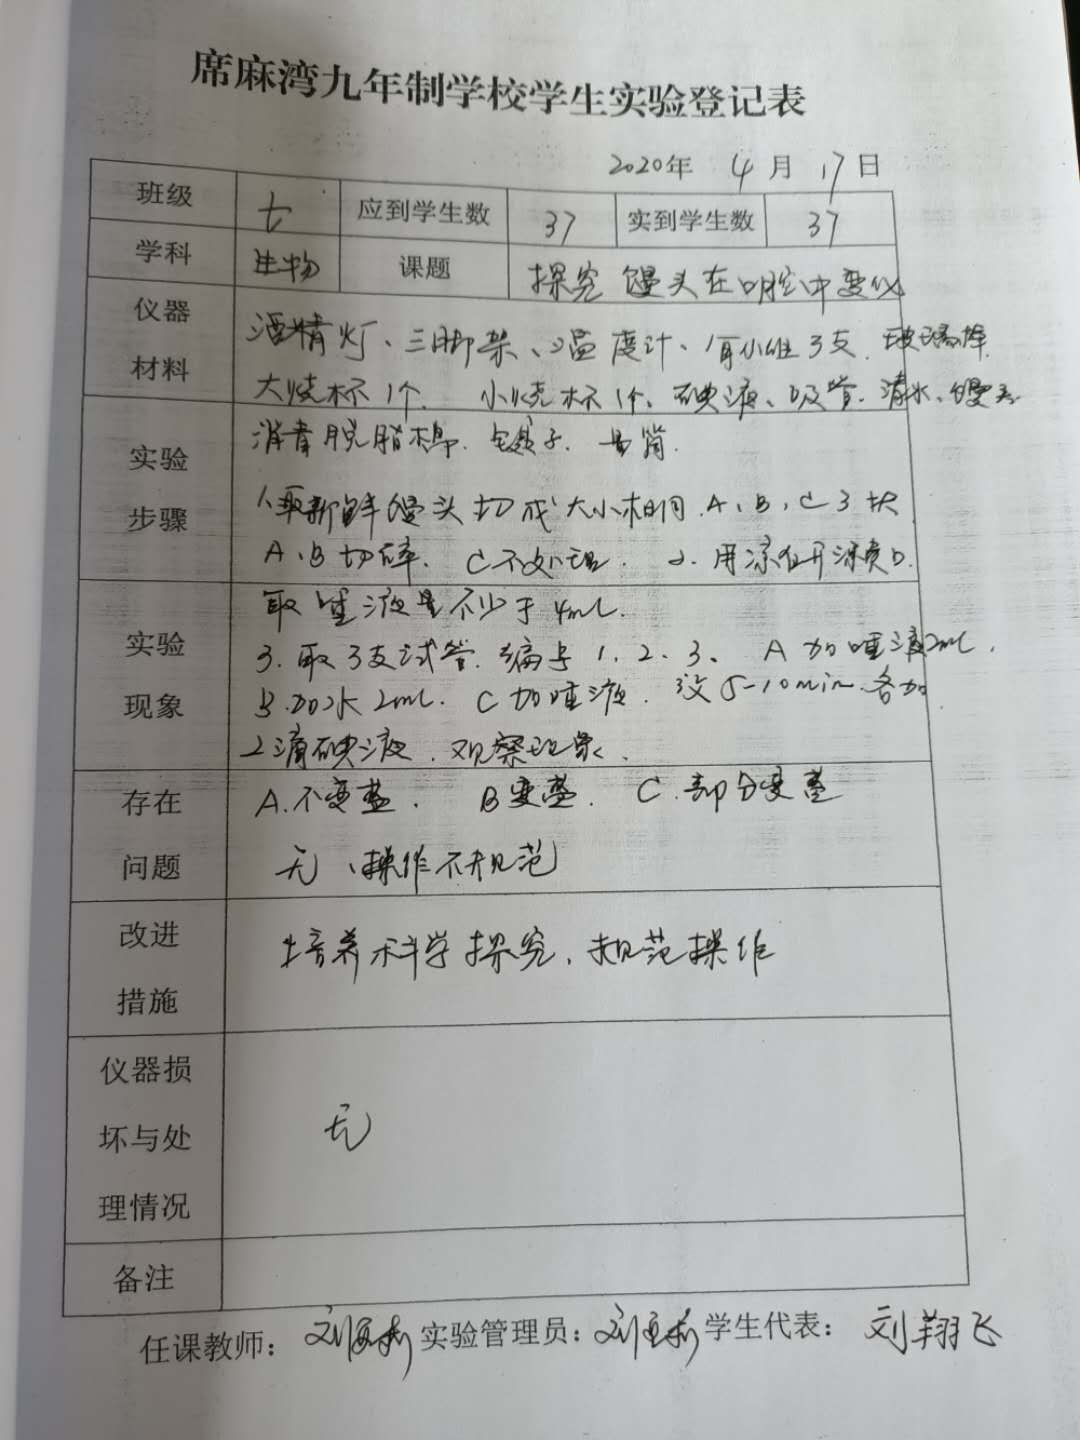 席麻湾九年制学校学生实验登记表
2020年 4月 17日
班级 七 应到学生数 37 实到学生数 37
学科 生物 课题 探究馒头在口腔中变化
仪器材料 酒精灯、三脚架、温度计、 3支、玻璃棒
大烧杯1个、小烧杯1个、碘液、吸管、清水、馒头
消毒脱脂棉、镊子、量筒.
实验步骤
1、取新鲜馒头切成大小相同A、B、C 3块
A、B切碎. C不处理. 2、用凉开水漱口.
取唾液量不少于4mL.
实验现象
3.取3支试管.编号1、2、3、 A加唾液2mL.
B.加水2mL. C加唾液. 5-10min.各加
2滴碘液.观察现象.
存在问题
A.不变蓝. B变蓝. C.部分变蓝
无、操作不规范
改进措施 培养科学探究、规范操作
仪器损坏与处理情况 无
备注
任课教师: 刘 实验管理员: 刘 学生代表: 刘翔飞